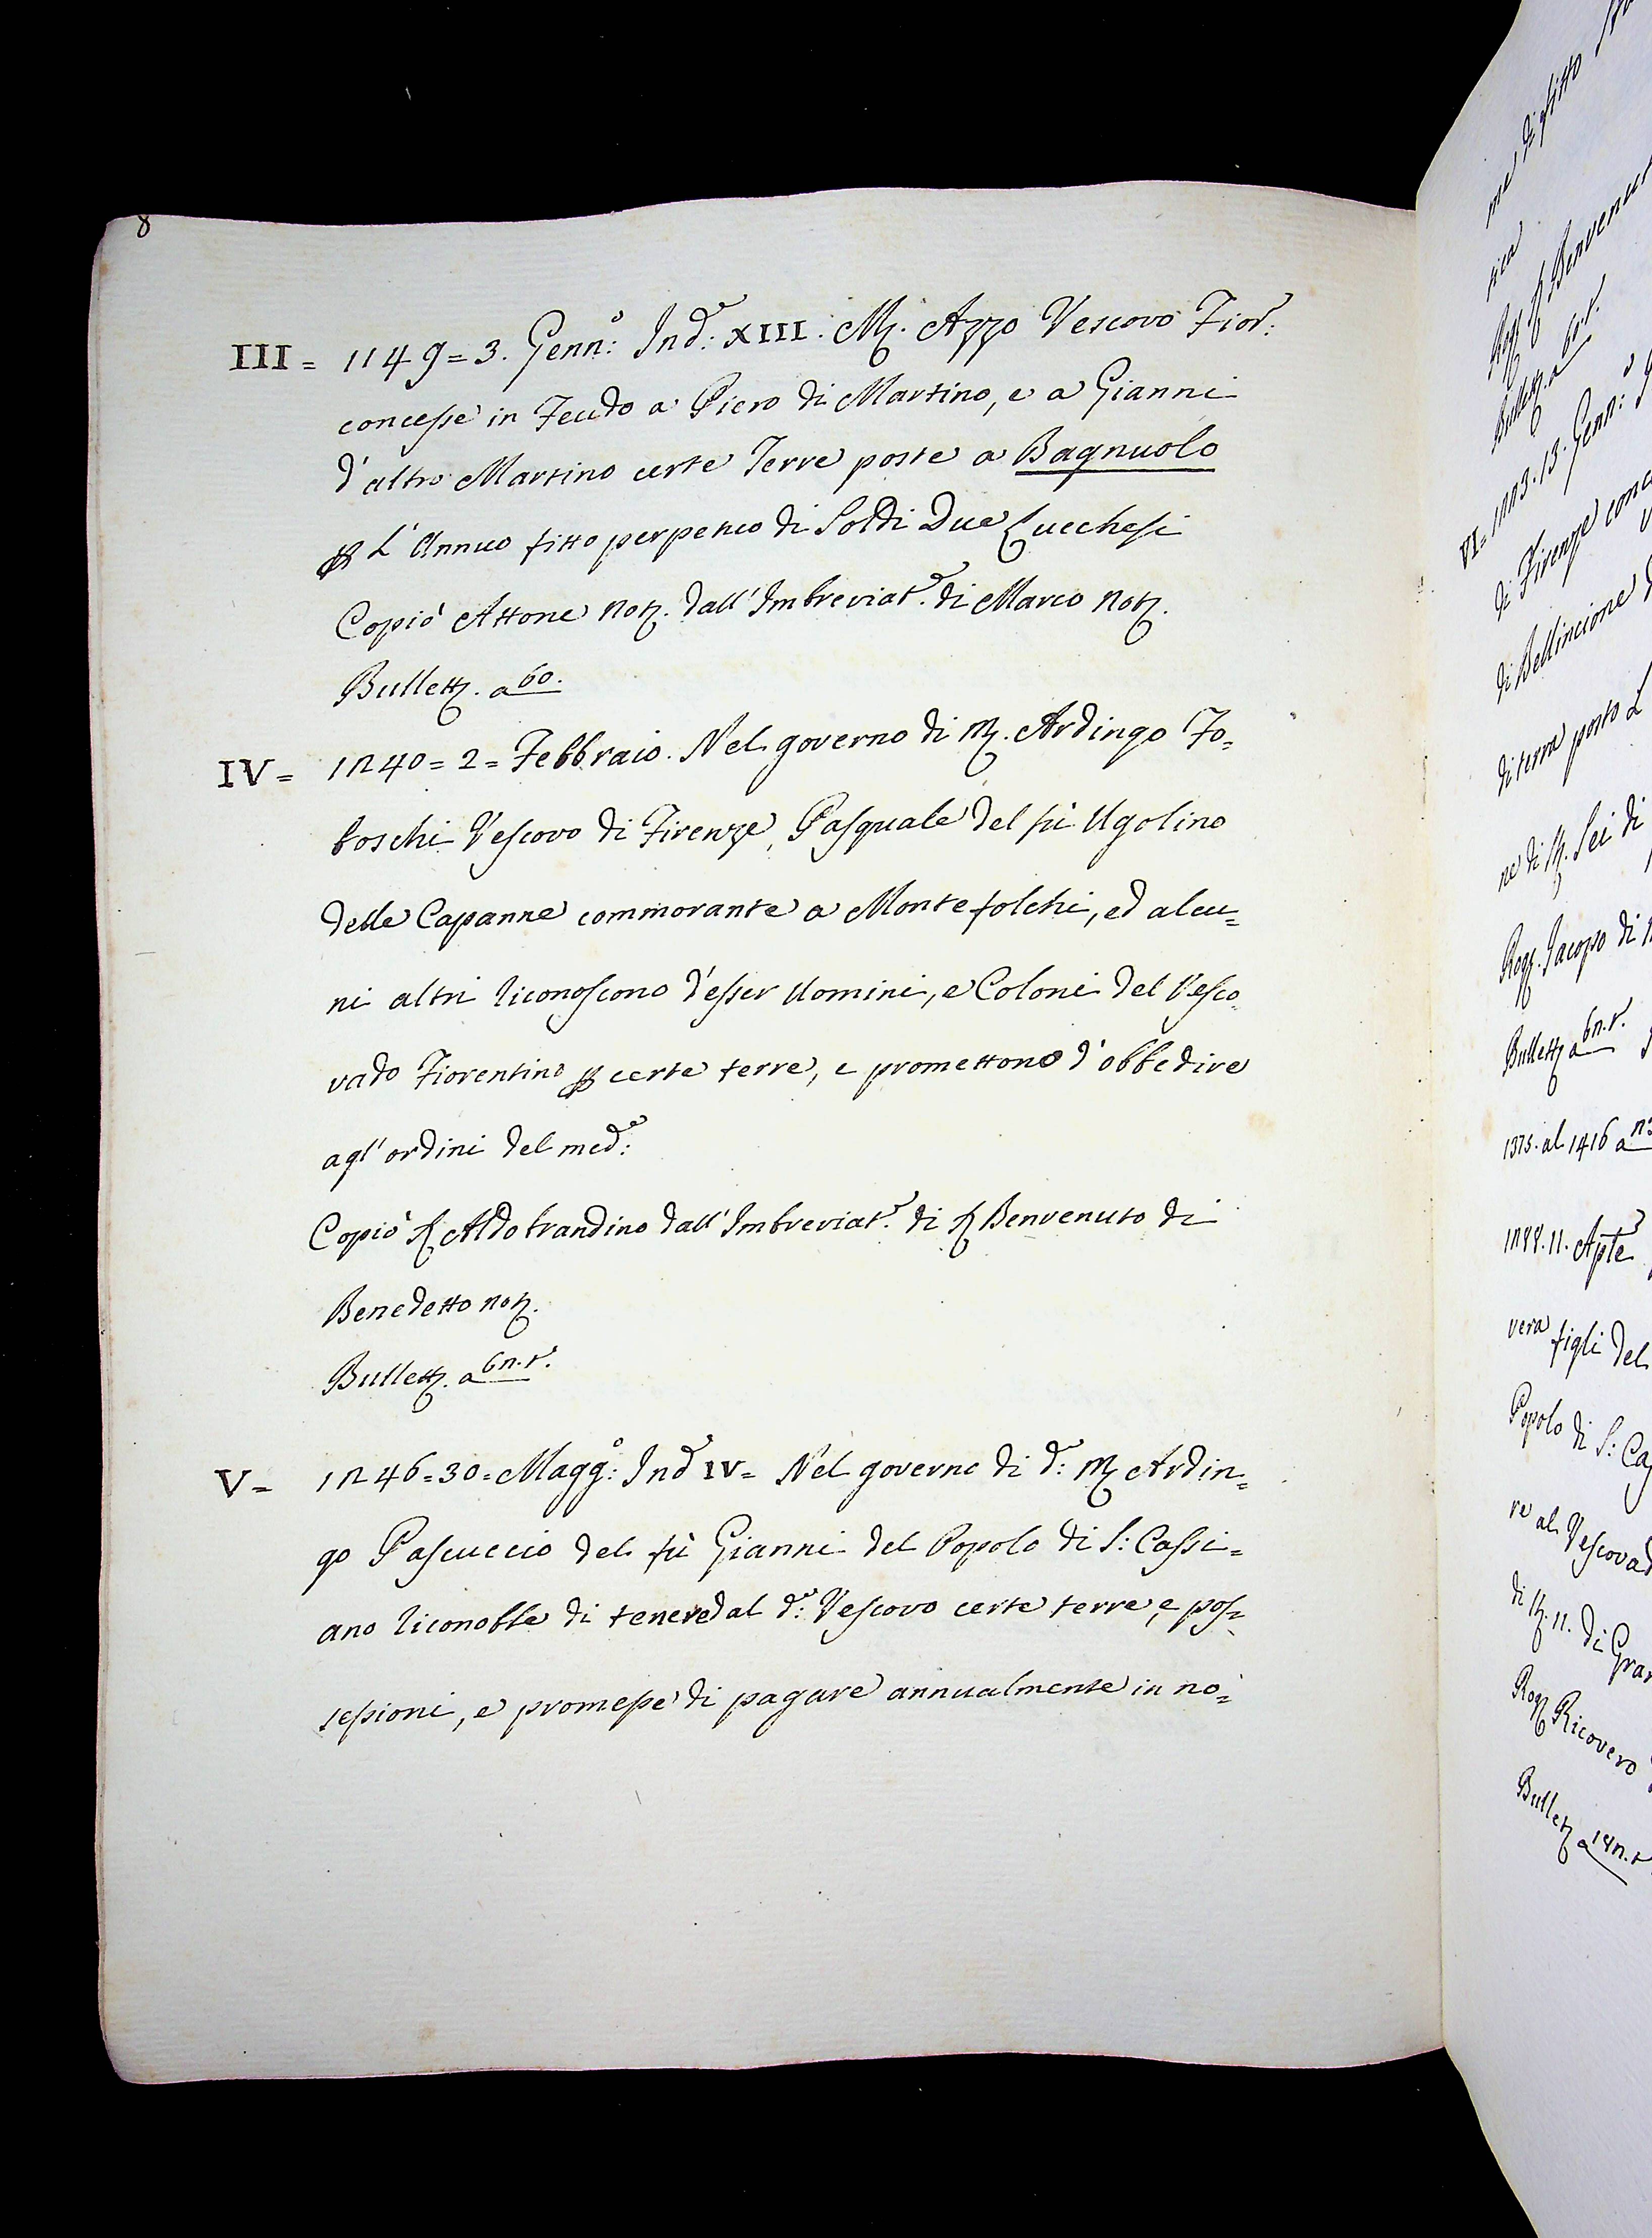 8
III = 1149 = 3. Genn:º Ind:ᵉ XIII. Mʒ. Azzo Vescovo Fior:ᵉ
concesse in Feudo a Piero di Martino, e a Gianni
d'altro Martino certe Terre poste a Bagnuolo
ꝑ L'Annuo fitto perpetuo di Soldi Due Lucchesi
Copiò Attone Notʒ. dall'Imbreviatᵉ. di Marco Notʒ.
Bullettʒ. a 60.
IV = 1240 = 2 = Febbraio. Nel governo di Mʒ. Ardingo Fo=
boschi Vescovo di Firenze, Pasquale del fù Ugolino
delle Capanne commorante a Montefolchi, ed alcu=
ni altri riconoscono d'esser Uomini, e Coloni del Vesco=
vado Fiorentino ꝑ certe terre, e promettono d'obbedire
agl'ordini del med:ᵒ
Copiò Sʒ Aldobrandino dall'Imbreviatᵉ. di Sʒ Benvenuto di
Benedetto notʒ.
Bullettʒ. a 62.t.
V = 1246 = 30 = Magg:º Indᵉ IV = Nel governo di d:ᵒ Mʒ Ardin=
go Pascuccio del fù Gianni del Popolo di S: Cassi=
ano riconobbe di tenere dal d:ᵒ Vescovo certe terre, e pos=
sessioni, e promesse di pagare annualmente in no=
me di fitto
Bullettʒ. a 61.t.
VI = 1223. 13. Genn:º
di Firenze conc
di Bellincione
di terra posto L
ne di Sʒ. Sei di
Rogʒ. Jacopo di
Bullettʒ a 62.t.
1375. al 1416 a
1288. 11. Apᵉ
vera figli del
Popolo di S: Ca
re al Vescovad
di Sʒ. 11. di Gran
Rogʒ Ricovero
Bullettʒ a 182.t